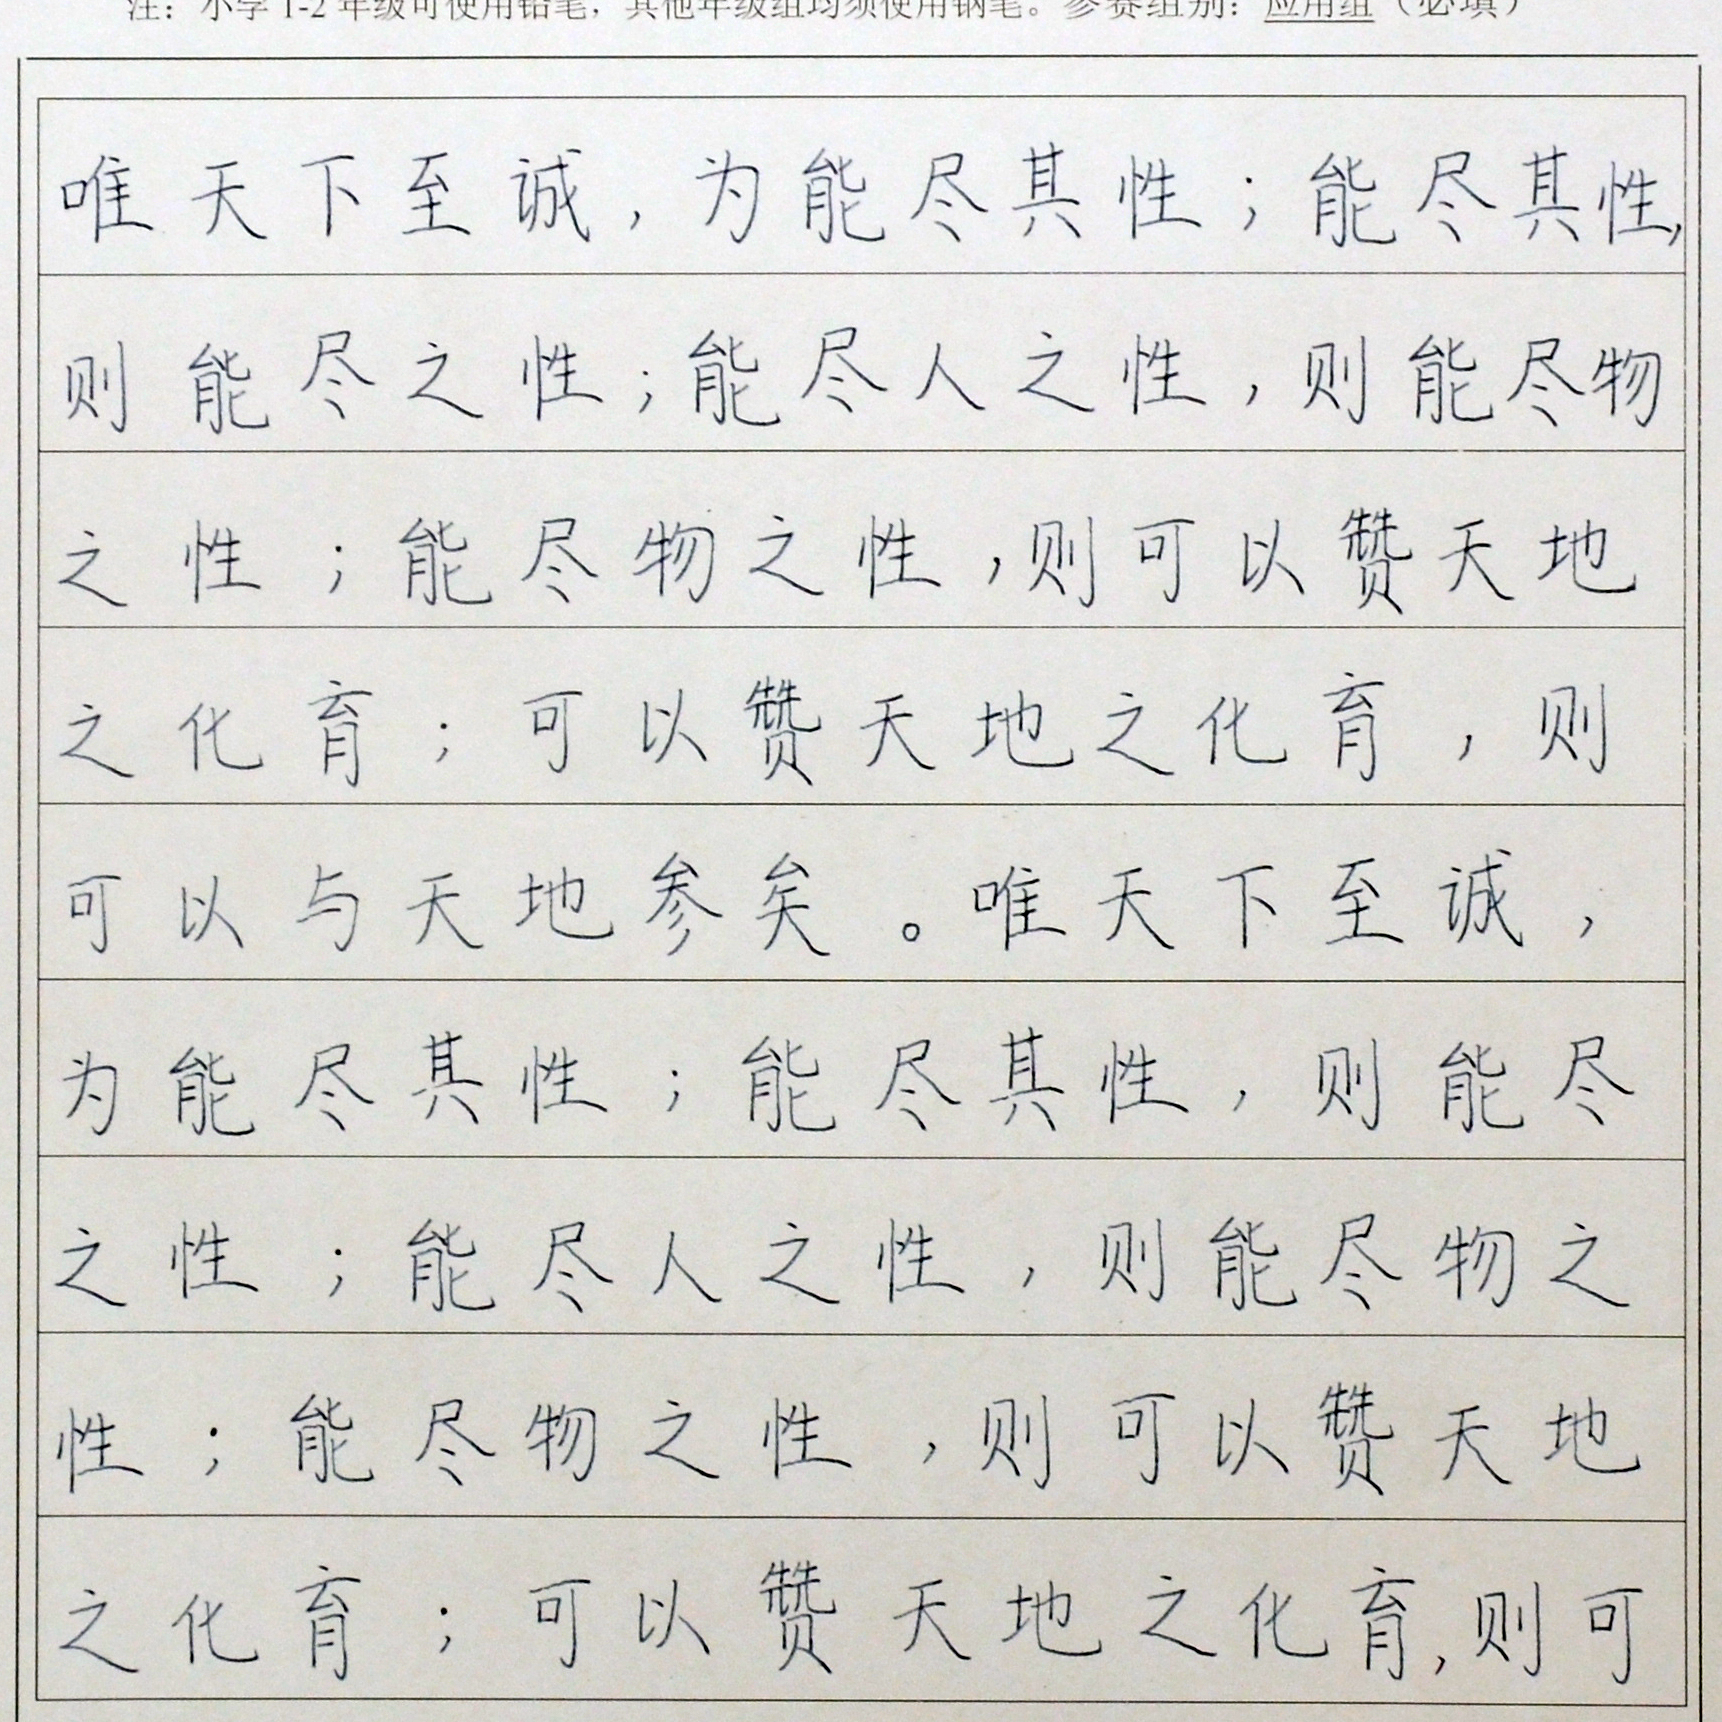 注：小学1-2年级可使用铅笔，其他年级组均须使用钢笔。参赛组别：应用组（必填）
唯天下至诚，为能尽其性；能尽其性，
则能尽之性；能尽人之性，则能尽物
之性；能尽物之性，则可以赞天地
之化育；可以赞天地之化育，则
可以与天地参矣。唯天下至诚，
为能尽其性；能尽其性，则能尽
之性；能尽人之性，则能尽物之
性；能尽物之性，则可以赞天地
之化育；可以赞天地之化育，则可